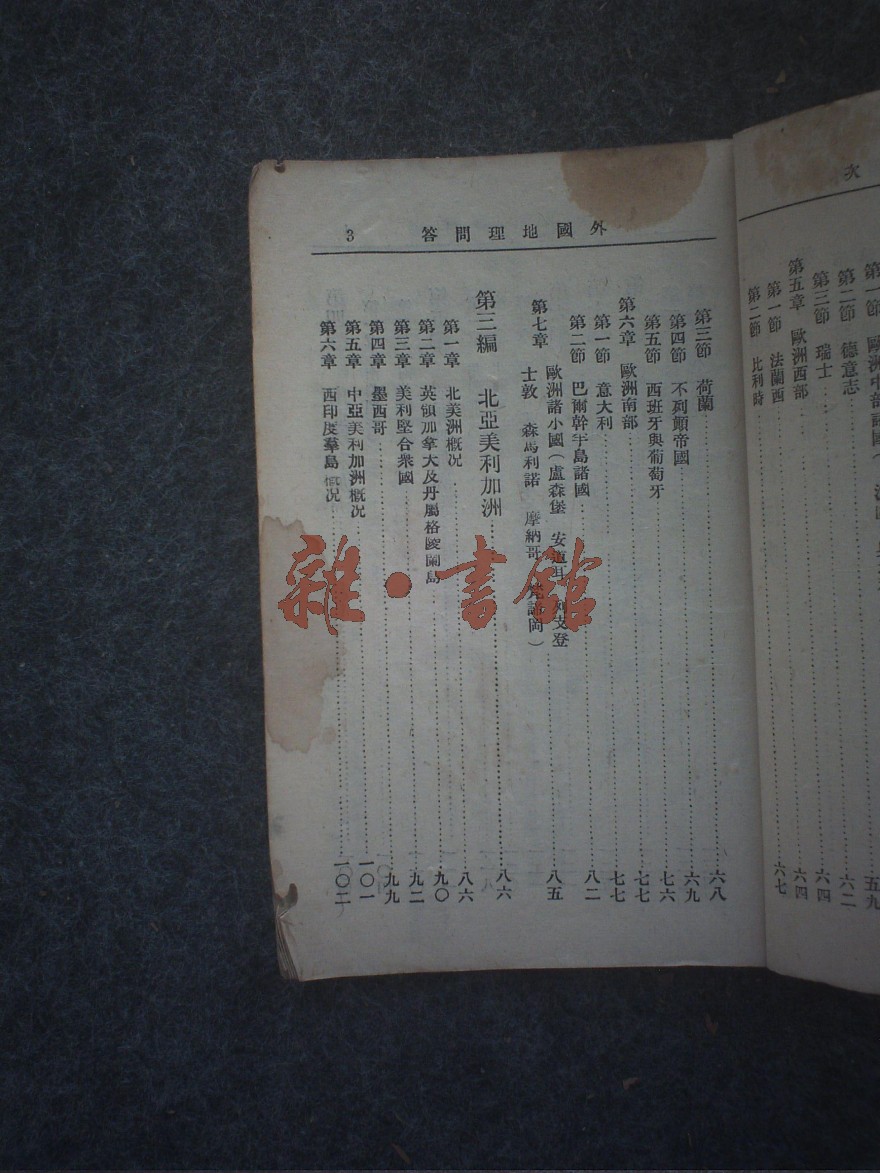 次
第一節 歐洲中部諸國
五九
第二節 德意志
六二
第三節 瑞士
六四
第五章 歐洲西部
六四
第一節 法蘭西
第二節 比利時
六七
外國地理問答 3
第三節 荷蘭 六八
第四節 不列顛帝國 六九
第五節 西班牙與葡萄牙 七六
第六章 歐洲南部 七七
第一節 意大利 七七
第二節 巴爾幹半島諸國 八二
第七章 歐洲諸小國(盧森堡 安道耳 列支登
士敦 森馬利諾 摩納哥 梵諦岡) 八五
第三編 北亞美利加洲 八六
第一章 北美洲概況 八六
第二章 英領加拿大及丹屬格陵蘭島 九〇
第三章 美利堅合衆國 九二
第四章 墨西哥 九九
第五章 中亞美利加洲概況 一〇一
第六章 西印度羣島概況 一〇二
雜·書館